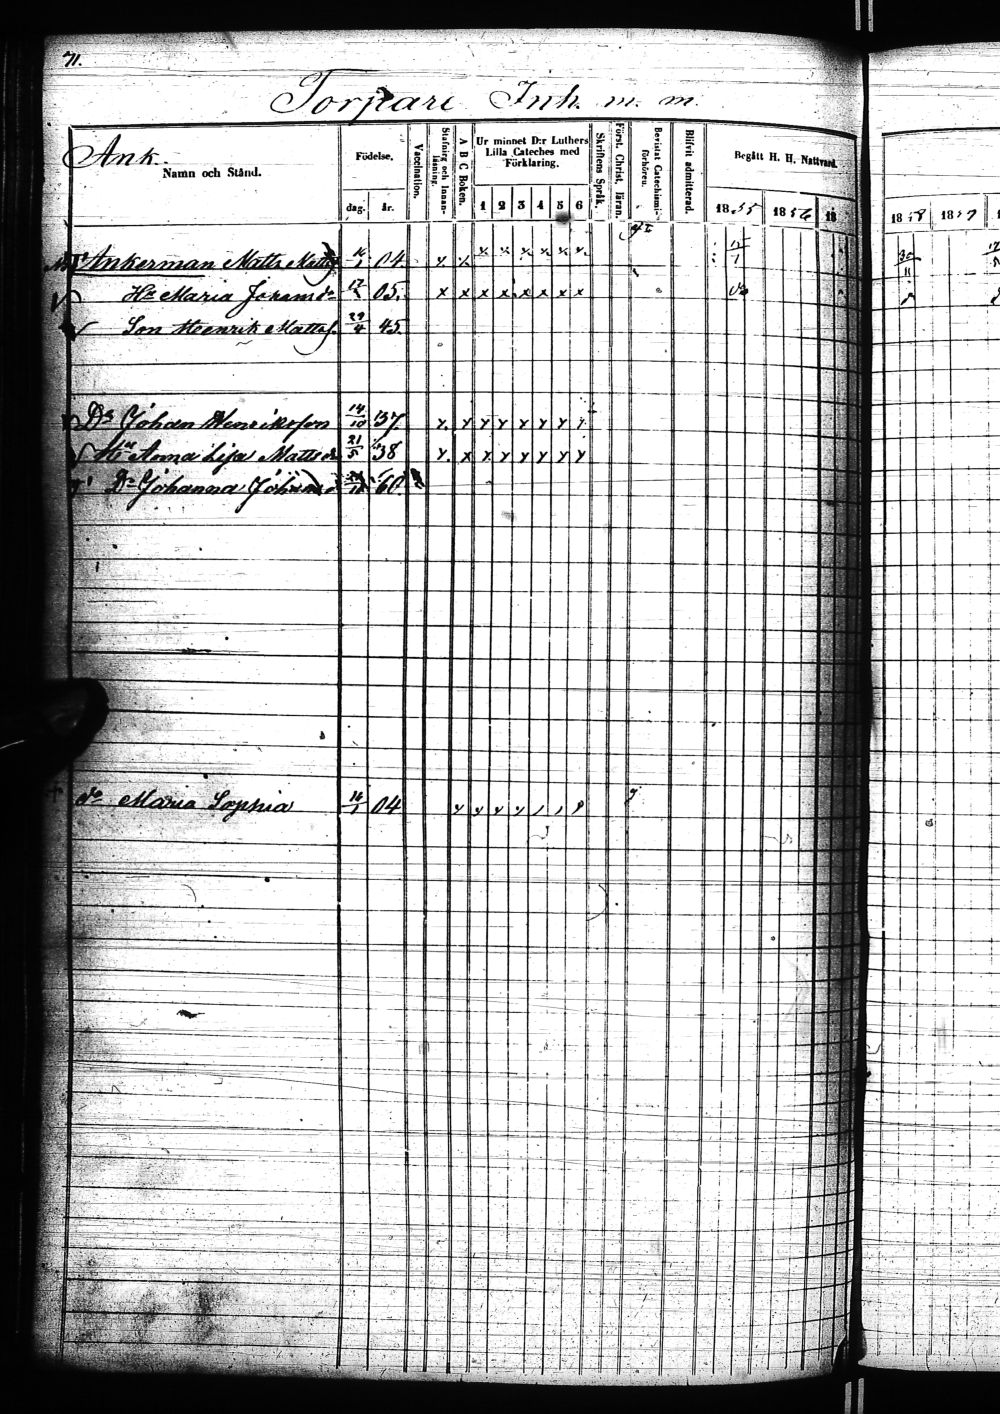 71.
Torpare Inh. m. m.
Ank.
Namn och Stånd.
Födelse.
dag. år.
Vaccination.
Stafning och Innanläsning.
A B C Boken.
Ur minnet D:r Luthers Lilla Cateches med Förklaring.
1 2 3 4 5 6
Skriftens Språk.
Först. Christ. läran.
Bevistat Catechismiförhören.
Blifvit admitterad.
Begått H. H. Nattvard.
1855 1856 18
1858 1859
Ankerman Matts Matts 16/1 04 x x x x x x x x 12/1 30/11
Hu Maria Johansdr 17/ 05. x x x x x x x x do
Son Henrik Matts. 29/4 45
Ds Johan Henriksson 14/10 37 x x x x x x x x
Hu Anna Lisa Mattsdr 21/5 38 x x x x x x x x
Dr Johanna Johansd 60
do Maria Sophia 16/1 04